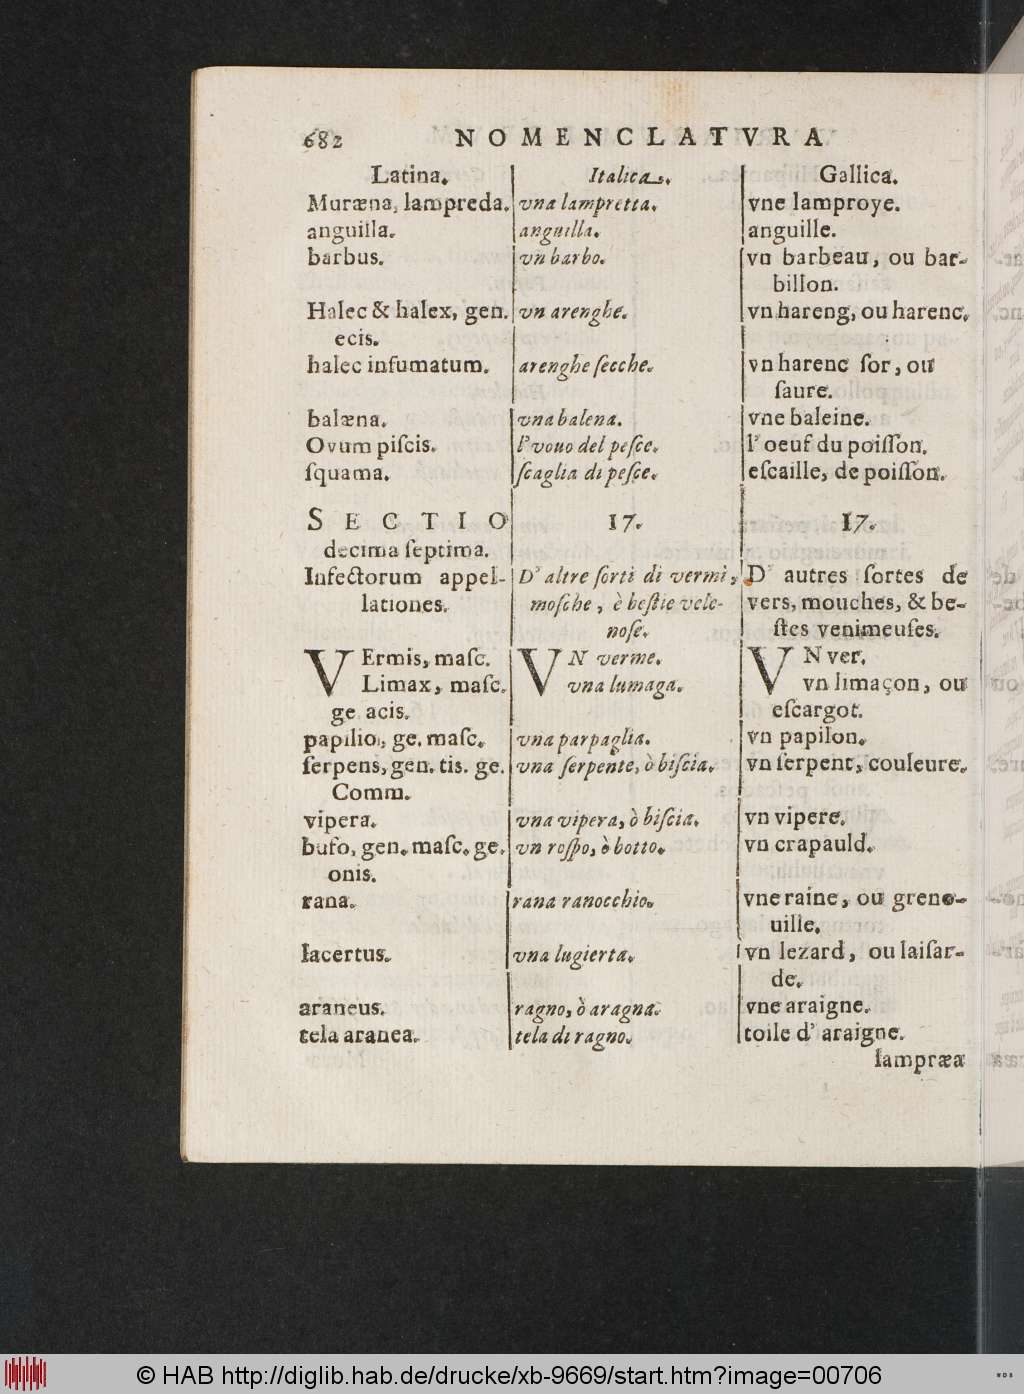 682 NOMENCLATVRA
Latina.
Muræna, lampreda.
anguilla.
barbus.
Halec & halex, gen.
ecis.
halec infumatum.
balæna.
Ovum piſcis.
ſquama.
SECTIO
decima ſeptima.
Inſectorum appel-
lationes.
VErmis, maſc.
Limax, maſc.
ge acis.
papilio, ge. maſc.
ſerpens, gen. tis. ge.
Comm.
vipera.
bufo, gen. maſc. ge.
onis.
rana.
lacertus.
araneus.
tela aranea.
Italica.
vna lampretta.
anguilla.
vn barbo.
vn arenghe.
arenghe ſecche.
vna balena.
l'vouo del peſce.
ſcaglia di peſce.
17.
D' altre ſorti di vermi,
moſche, è beſtie vele-
noſe.
VN verme.
vna lumaga.
vna parpaglia.
vna ſerpente, ò biſcia.
vna vipera, ò biſcia.
vn roſpo, è botto.
rana ranocchio.
vna lugierta.
ragno, ò aragna.
tela di ragno.
Gallica.
vne lamproye.
anguille.
vn barbeau, ou bar-
billon.
vn hareng, ou harenc.
vn harenc ſor, ou
ſaure.
vne baleine.
l' oeuf du poiſſon.
eſcaille, de poiſſon.
17.
D' autres ſortes de
vers, mouches, & be-
ſtes venimeuſes.
VN ver.
vn limaçon, ou
eſcargot.
vn papilon.
vn ſerpent, couleure.
vn vipere.
vn crapauld.
vne raine, ou greno-
uille.
vn lezard, ou laiſar-
de.
vne araigne.
toile d' araigne.
lampræa
© HAB http://diglib.hab.de/drucke/xb-9669/start.htm?image=00706